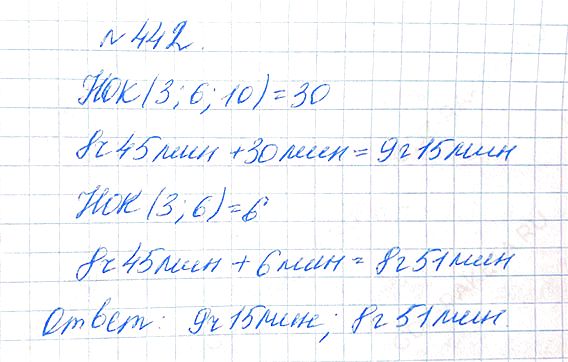 №442.
НОК(3; 6; 10)=30
8ч45мин+30мин=9ч15мин
НОК(3; 6)=6
8ч45мин+6мин=8ч51мин
Ответ: 9ч15мин; 8ч51мин.